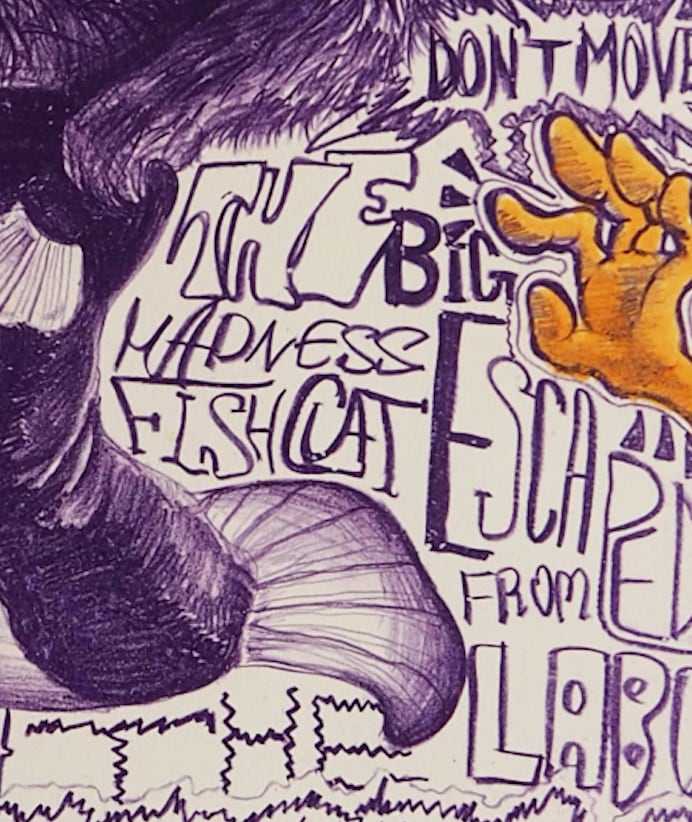 DON'T MOVE
THE BIG
MADNESS
FISHCAT
ESCAPED
FROM
LABO
THE